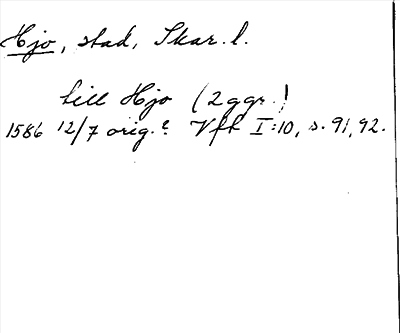 Hjo, stad, Skar. l.
till Hjo (2 ggr.)
1586 12/7 orig.? Vfk I:10, s. 91, 92.